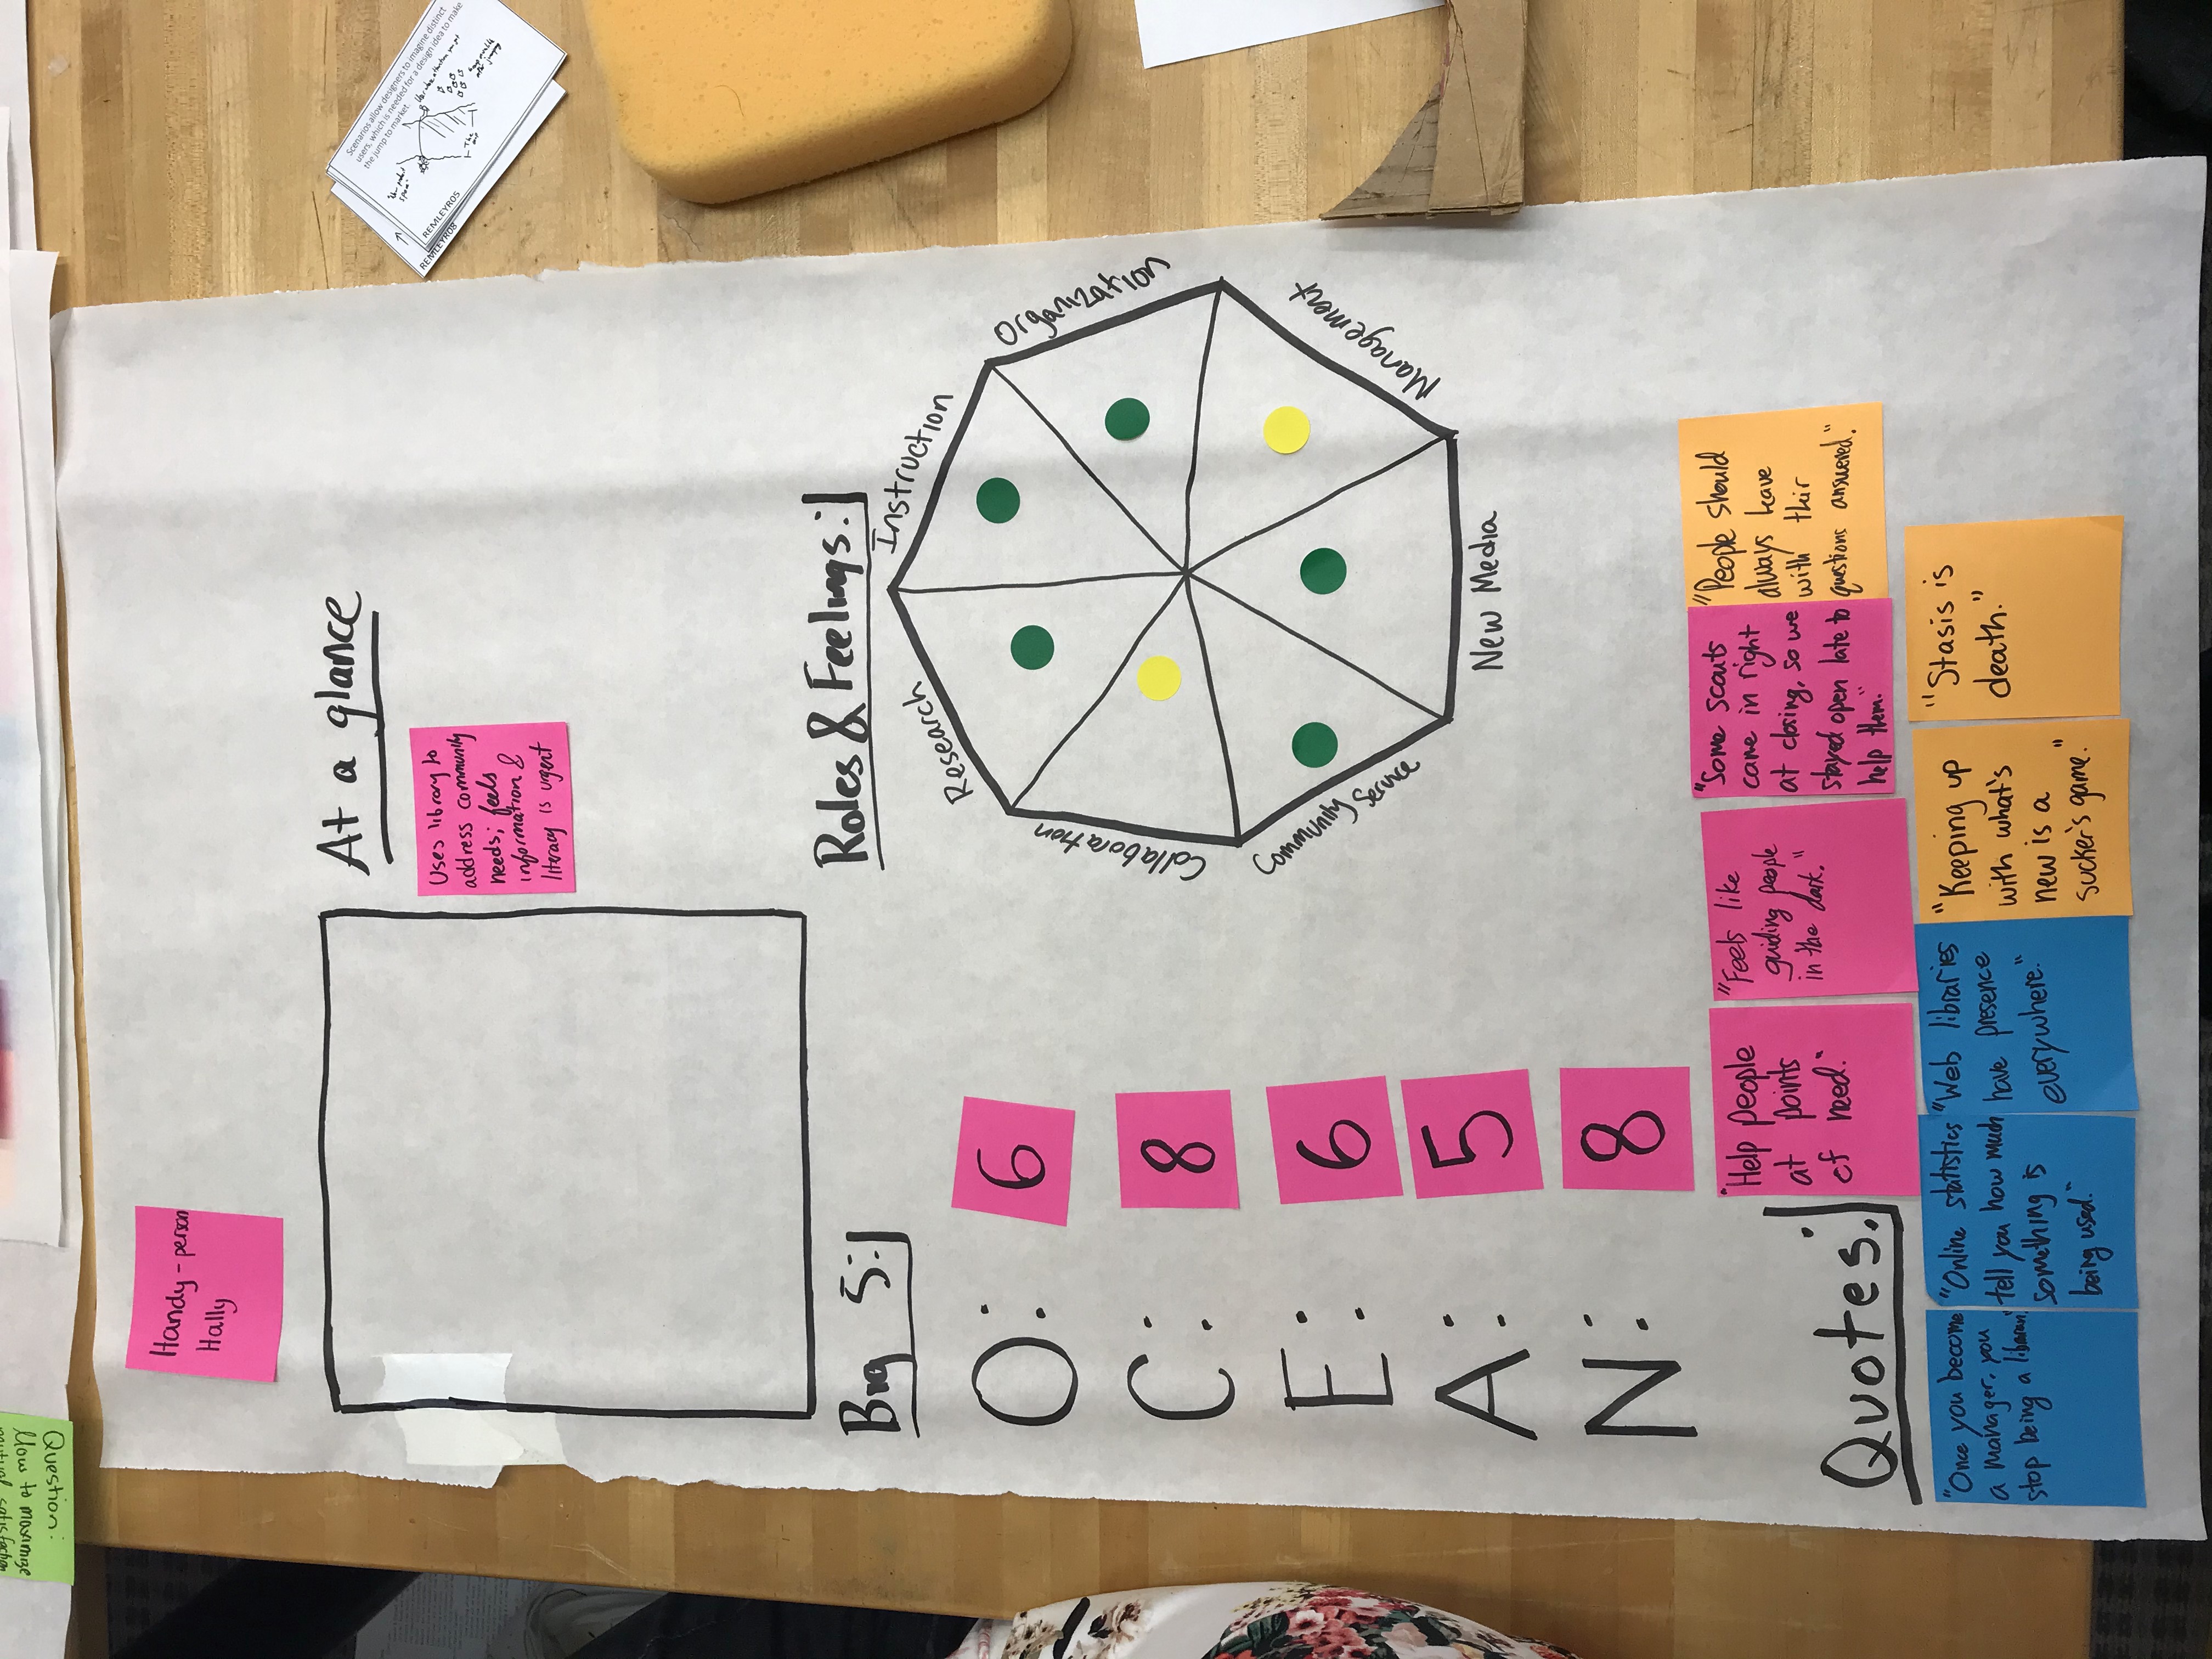 Question:
How to maximize
mutual satisfaction
Handy-person
Hally
At a glance
Uses library to
address community
needs; feels
information &
literacy is urgent
Scenarios allow designers to imagine distinct
users, which is needed for a design idea to make
the jump to market.
REMLEYRO5
REMLEYRO8
Big 5:
O: 6
C: 8
E: 6
A: 5
N: 8
Roles & Feelings:
Instruction
Organization
Management
New Media
Community Service
Collaboration
Research
Quotes:
"Help people
at points
of need."
"Feels like
guiding people
in the dark."
"Some scouts
came in right
at closing, so we
stayed open late to
help them."
"People should
always leave
with their
questions answered."
"Once you become
a manager, you
stop being a librarian."
"Online statistics
tell you how much
something is
being used."
"Web libraries
have presence
everywhere."
"Keeping up
with what's
new is a
sucker's game."
"Stasis is
death."